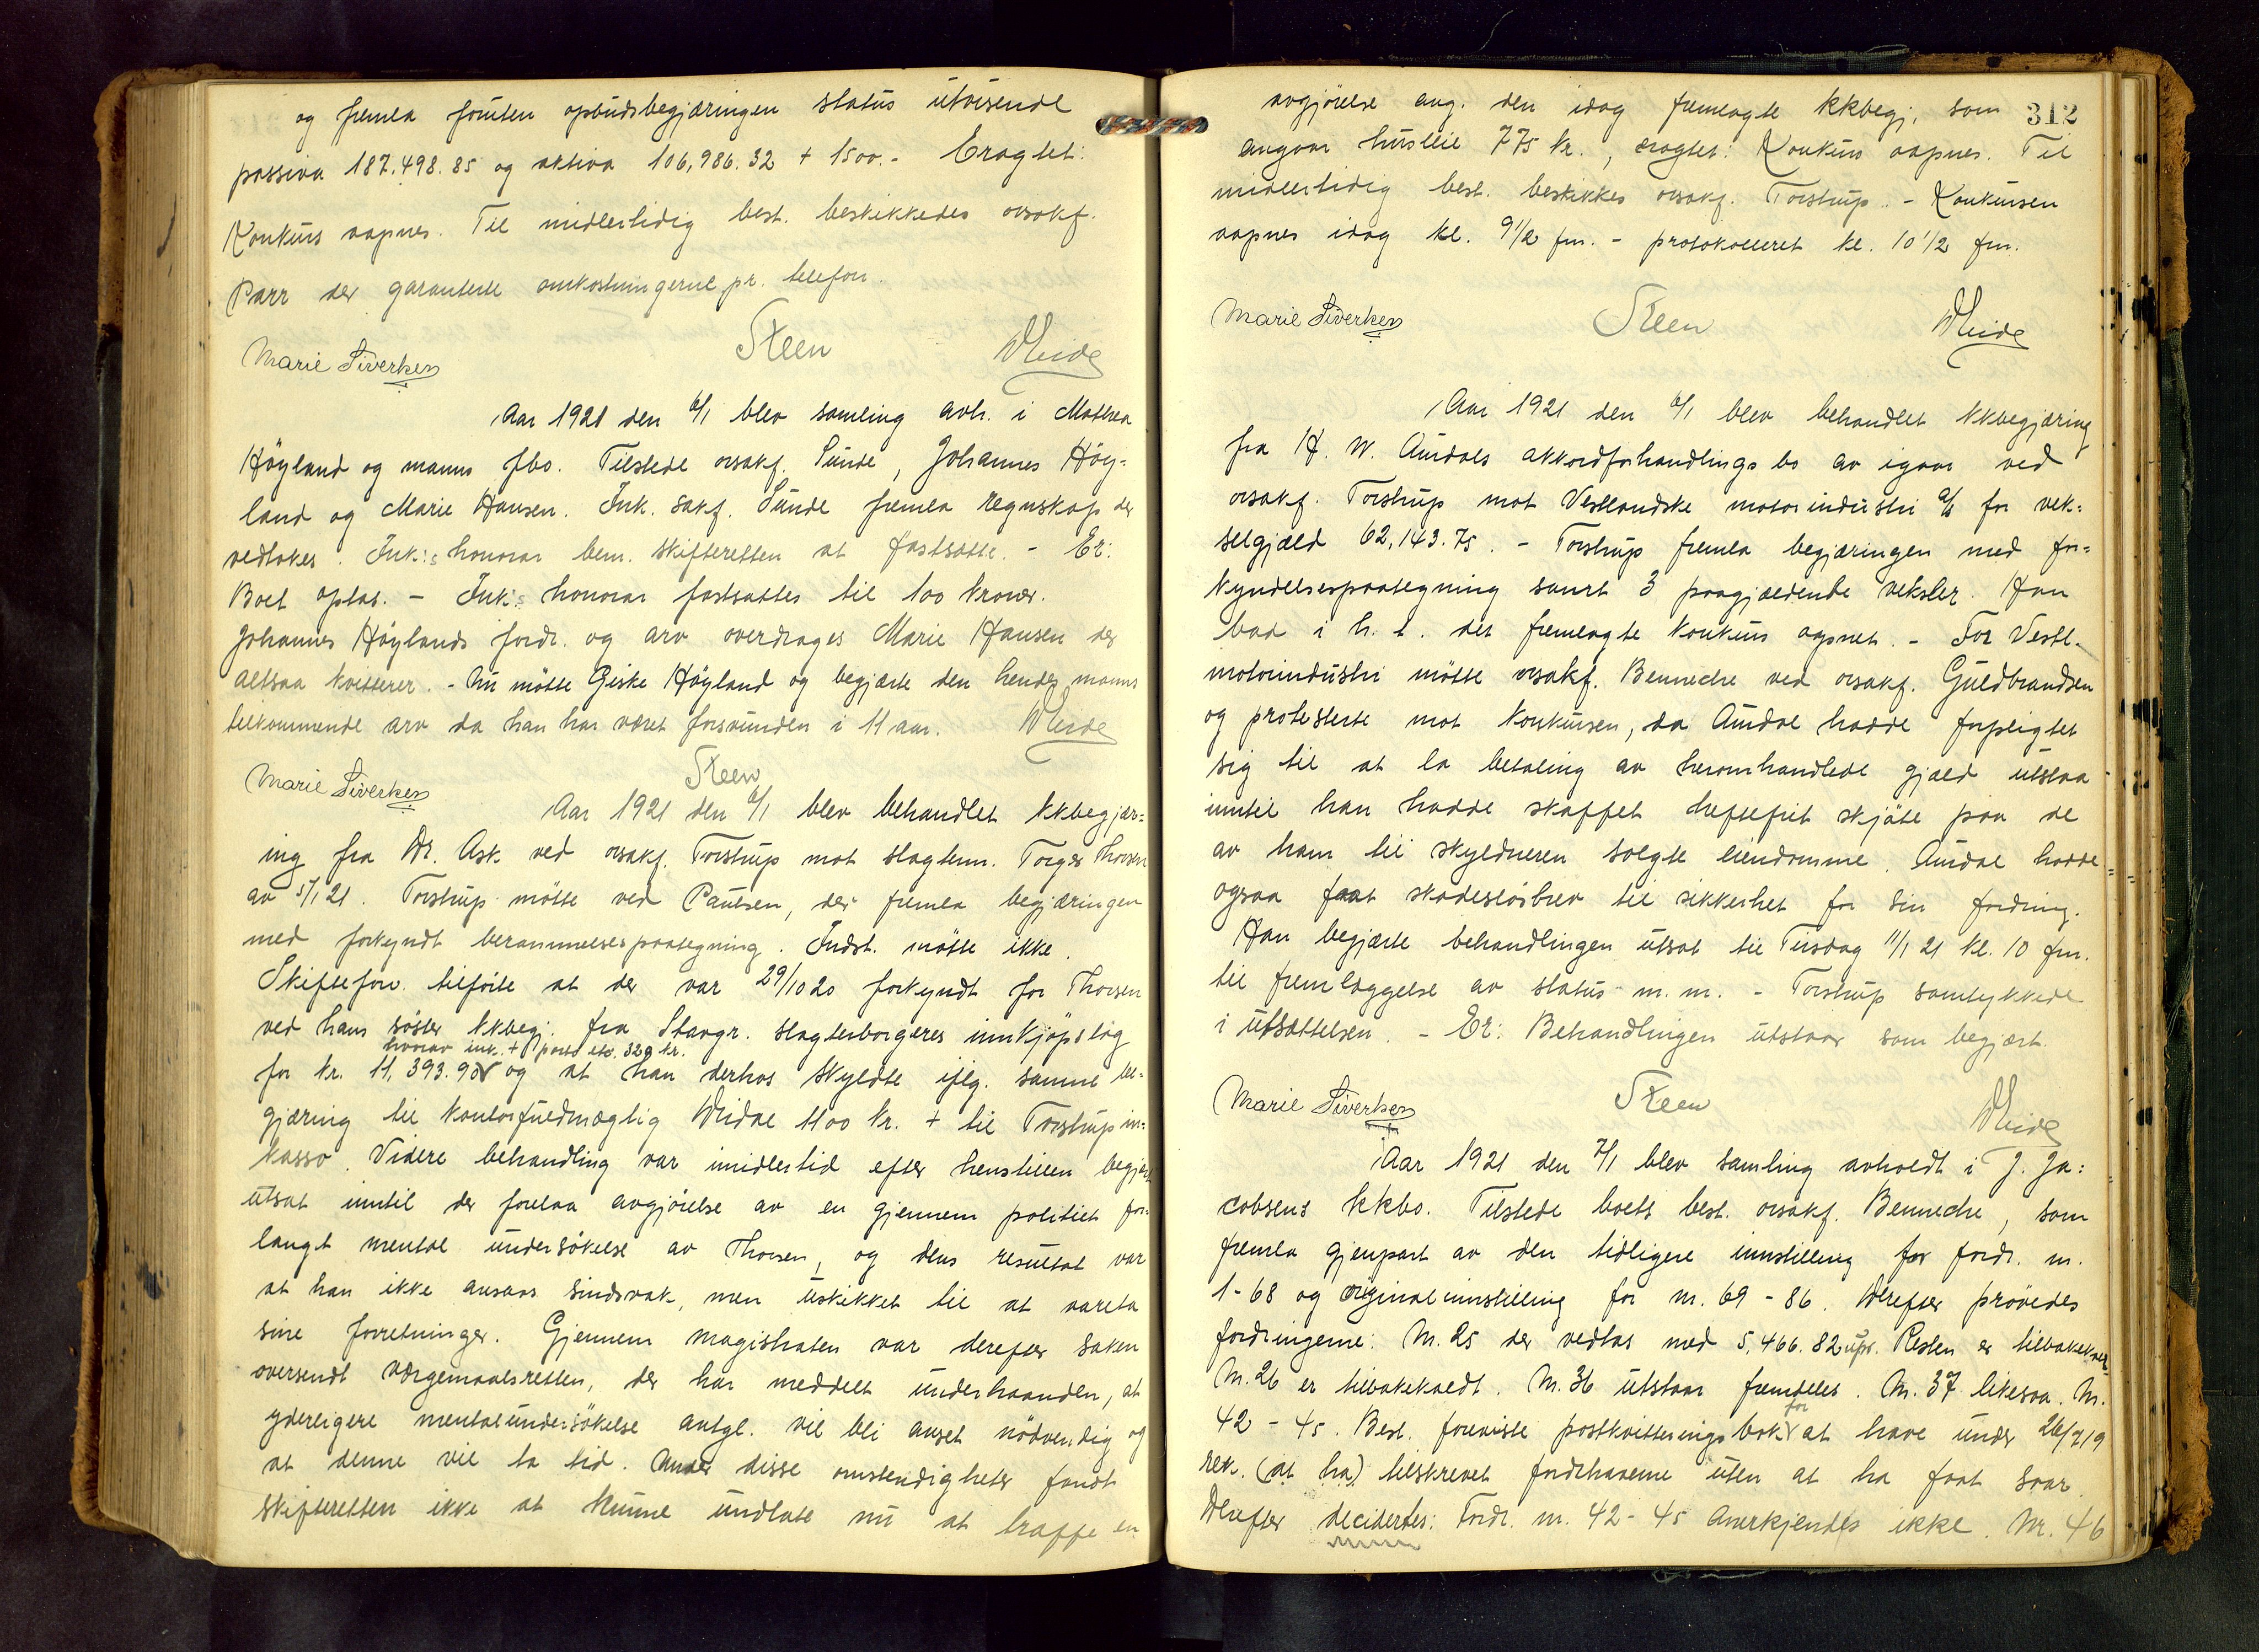 og fremla foruten opbudsbegjæringen status utvisende
passiva 187.498.85 og aktiva 106,986.32 + 1500.- Eragtet:
Konkurs aapnes. Til midlertidig best. beskikkedes orsakf.
Parr der garanterte omkostningerne pr. telefon.
Marie Siverkes Steen
Aar 1921 den 6/1 blev samling avh. i Mathea
Höyland og manns fbo. Tilstede orsakf. Sunde, Johannes Höy-
land og Marie Hansen. Ink. sakf. Sunde fremla regnskap der
vedtokes. Ink:s honorar bem. skifteretten at fastsætte. - Er:
Boet optat. - Ink:s honorar fastsattes til 100 kroner.
Johannes Höylands fordr. og arv overdrages Marie Hansen der
altsaa kvitterer. - Nu mötte Giske Höyland og begjærte den hendes manns
tilkommende arv da han har været forsvunden i 11 aar.
Marie Siverkes Steen
Aar 1921 den 6/1 blev behandlet kkbegjær=
ing fra Dr. Ask ved orsakf. Torstrup mot slagterm. Torger Thorsen
av 5/1 21. Torstrup mötte ved Paulsen, der fremla begjæringen
med forkyndt berammelsespaategning. Indst. mötte ikke.
Skiftefov. tilförte at der var 29/10 20 forkyndt for Thorsen
ved hans söster kkbegj. fra Stavgr. slagterborgeres innkjöpslag
hvorav ink. + porto etc. 329 kr.
for kr. 11,393.90 og at han derhos skyldte iflg. samme be-
gjæring til kontorfuldmægtig 1100 kr. + til Torstrup in=
kasso. Videre behandling var imidlertid efter henstillen begjært
utsat inntil der forelaa avgjörelse av en gjennem politiet for-
langt mental undersökelse av Thorsen, og dens resultat var
at han ikke ansaas sindsvak, men uskikket til at vareta
sine forretninger. Gjennem magistraten var derefter saken
oversendt vergemaalsretten, der har meddelt underhaanden, at
yderligere mentalundersökelse antgl. vil bli anset nödvendig og
at denne vil ta tid. Under disse omstendigheter fandt
skifteretten ikke at kunne undlate nu at træffe en
312
avgjörelse ang. den idag fremlagte kkbegj. som
angaar husleie 775 kr., eragtet: Konkurs aapnes. Til
midlertidig best. beskikkes orsakf. Torstrup. - Konkursen
aapnes idag kl. 9 1/2 fm. - protokolleret kl. 10 1/2 fm.
Marie Siverkes Steen
Aar 1921 den 6/1 blev behandlet kkbegjæring
fra H. W. Aurdals akkordforhandlings bo av igaar ved
orsakf. Torstrup mot Vestlandske motorindustri a/s for vek=
selgjæld 62,143.75. - Torstrup fremla begjæringen med for=
kyndelsespaategning samt 3 paagjældende veksler. Han
bad i h. t. det fremlagte konkurs apnet. - For Vestl.
motorindustri mötte orsakf. Benneche ved orsakf. Guldbrandsen
og protesterte mot konkursen, da Aurdal hadde forpligtet
sig til at la betaling av heromhandlede gjæld utstaa
inntil han hadde skaffet heftefrit skjöte paa de
av ham til skyldneren solgte eiendomme. Aurdal hadde
ogsaa faat skadeslösbrev til sikkerhet for sin fordring.
Han begjærte behandlingen utsat til Tirsdag 11/1 21 kl. 10 fm.
til fremlæggelse av status m. m. - Torstrup samtykkede
i utsættelsen. - Er: Behandlingen utstaar som begjært.
Marie Siverkes Steen
Aar 1921 den 7/1 blev samling avholdt i J. Ja:
cobsens kkbo. Tilstede boets best. orsakf. Bennecke, som
fremla gjenpart av den tidligere innstilling for fordr. nr.
1-68 og originalinnstilling for nr. 69-86. Derefter prövedes
fordringerne: Nr. 25 der vedtas med 5,466.82 upr. Resten er tilbakekaldt
Nr. 26 er tilbakekaldt. Nr. 36 utstaar fremdeles. Nr. 37 likesaa. Nr.
for
42-45. Best. foreviste postkvitteringsbok at have under 26/7 19
rek. (at ha) tilskrevet fordrhaverne uten at ha faat svar.
Derefter decidertes: Fordr. nr. 42-45 anerkjendes ikke. Nr. 46